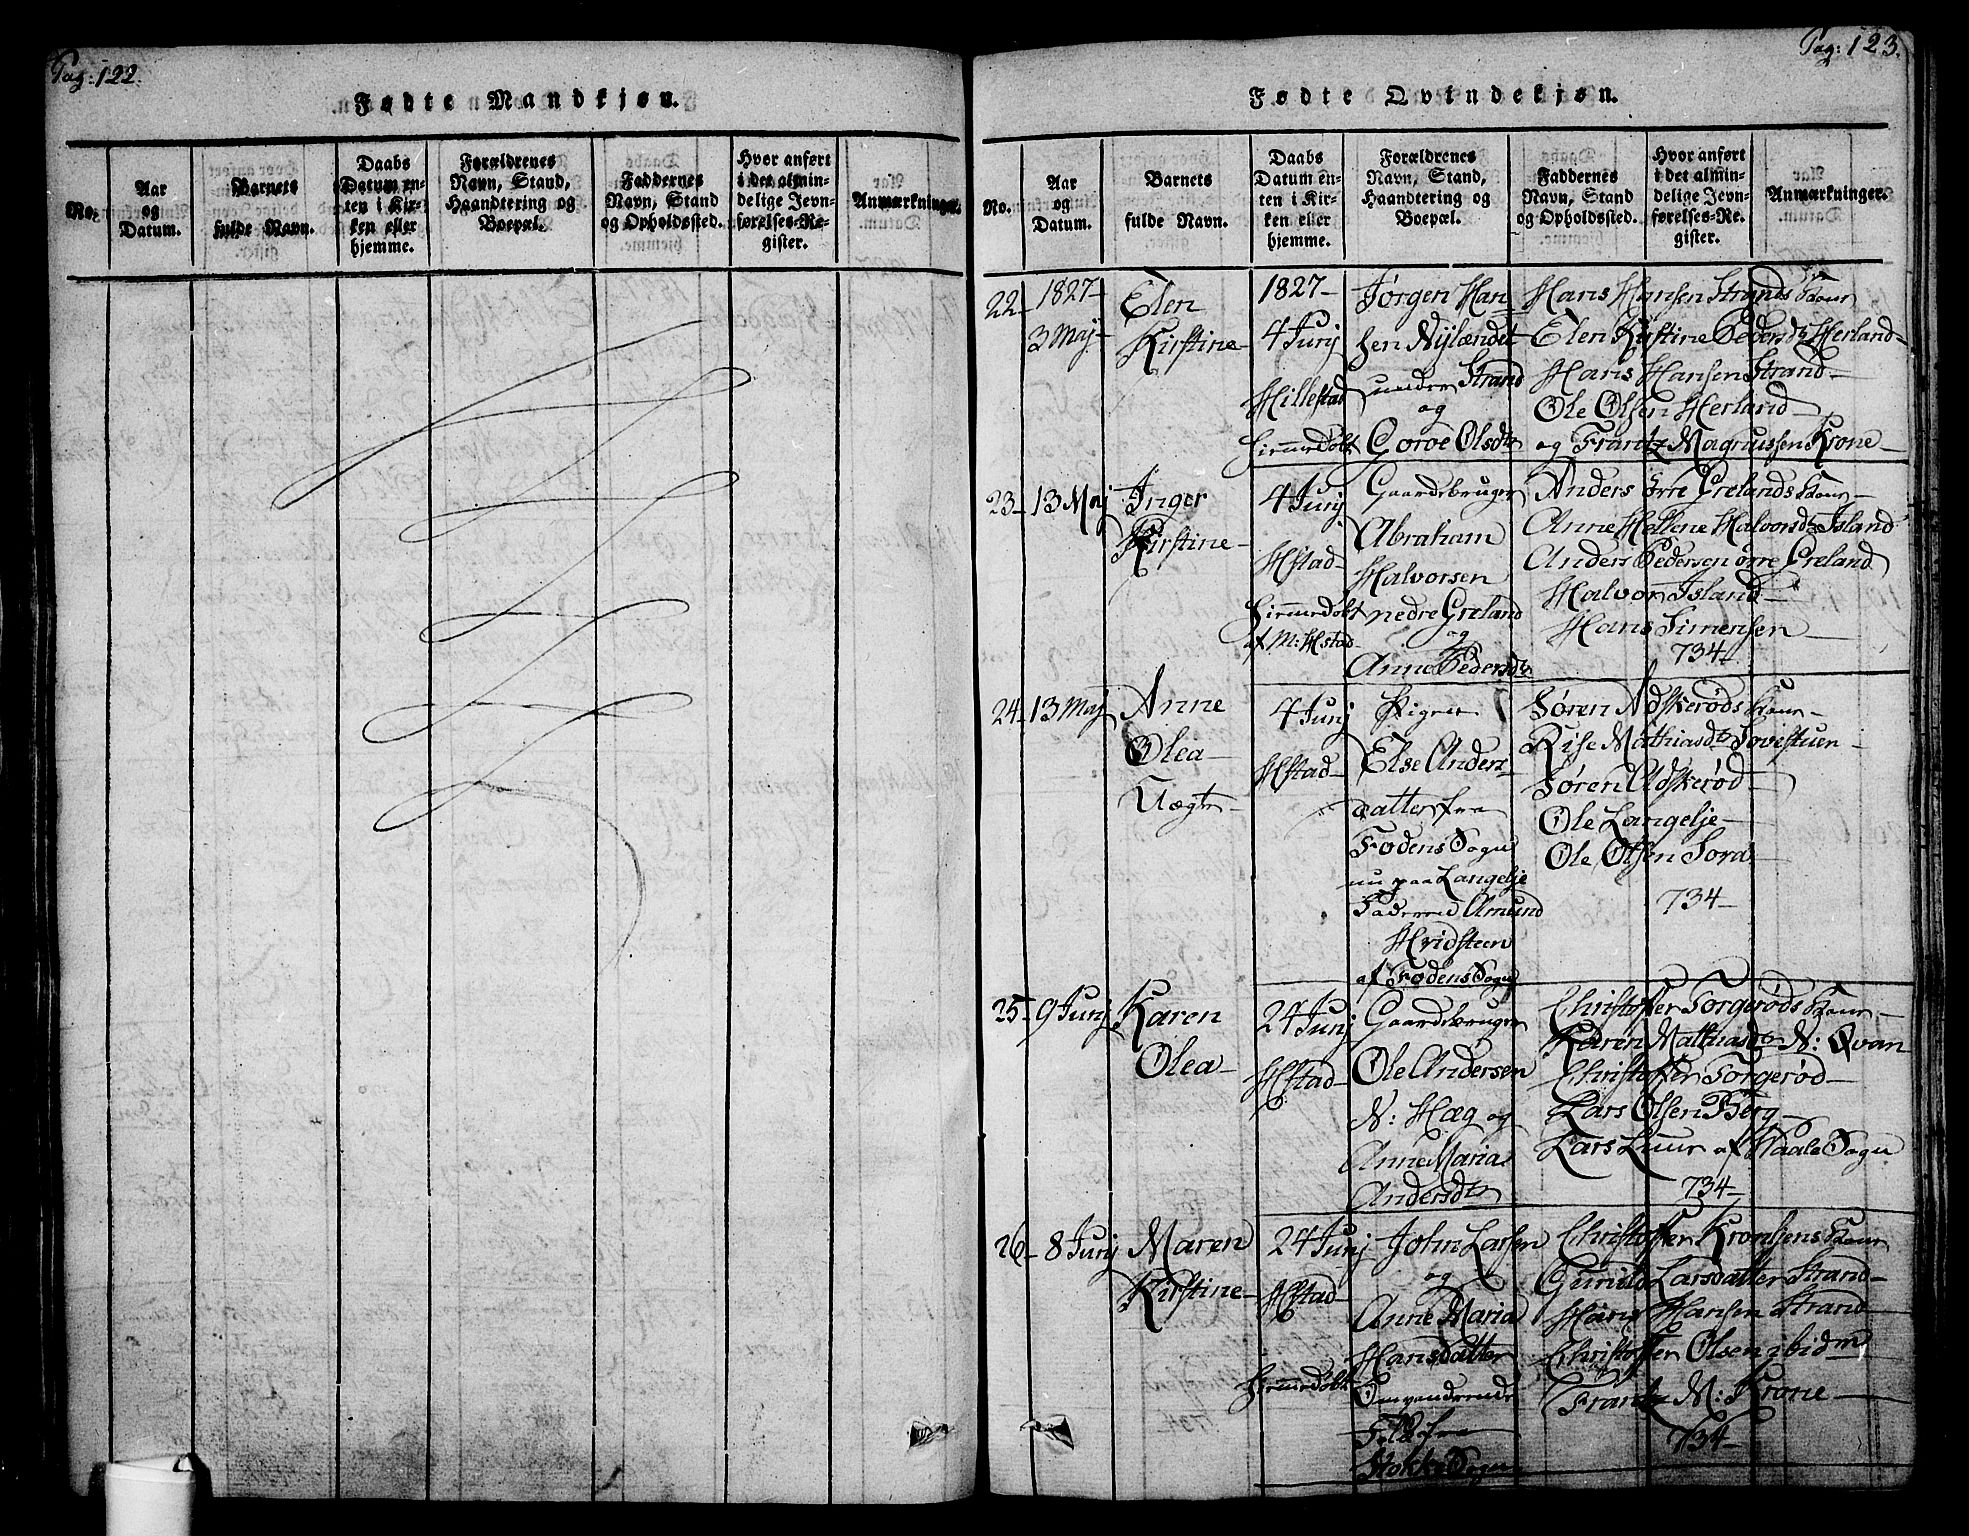 Pag: 122.
Fødte Mandkjøn.
No.
Aar og Datum.
Barnets fulde Navn.
Daabs Datum enten i Kirken eller hjemme.
Forældrenes Navn, Stand, Haandtering og Boepæl.
Faddernes Navn, Stand og Opholdssted.
Hvor anført i det almindelige Jevnførelses-Register.
Anmærkninger.
Pag: 123.
Fødte Qvindekjøn.
No.
Aar og Datum.
Barnets fulde Navn.
Daabs Datum enten i Kirken eller hjemme.
Forældrenes Navn, Stand, Haandtering og Boepæl.
Faddernes Navn, Stand og Opholdssted.
Hvor anført i det almindelige Jevnførelses-Register.
Anmærkninger.
22-
1827-
3 Maj-
Elen
Kirstine-
1827-
4 Junj
Hillestad
Hiemedøbt
Jørgen Han
sen Nÿlændet
under Strand
og
Goroe Olsdtr
Hans Hansen Strands Kone
Elen Kirstine Pedersdtr Herland-
Hans Hansen Strand-
Ole Olsen Herland-
og Frantz Magnussen Krone-
23-
13 Maj
Inger
Kirstine-
4 Junj
Hstad-
Hiemedøbt
af M: Hstad
Gaardsbruger
Abraham
Halvorsen
nedre Greland
og
Anne Pedersdtr
Anders øvre Grelands Kone-
Anne Hellene Halvorsdtr Island
Anders Pedersen øvre Greland
Halvor Island-
Hans Simensen-
734-
24-
13 Maj
Anne
Olea-
Uægte-
4 Junj
Hstad-
Pigen
Else Anders
datter fra
Fodens Sogn
nu paa Langelje
Faderen Amund
Hvidsteen
af Fodens Sogn
Søren Adskerøds Kone-
Rise Mathiasdtr Sovestuen-
Søren Adskerød-
Ole Langelje-
Ole Olsen Sora-
734-
25-
9 Junj
Karen
Olea-
24 Junj
Hstad-
Gaardsbruger
Ole Andersen
N: Hæg og
Anne Maria
Andersdtr
Christoffer Torgerøds Kone-
Karen Mathiasdtr N: Qvan
Christoffer Torgerød-
Lars Olsen Berg-
Lars Luur af Vaale Sogn
734-
26-
8 Junj
Maren
Kirstine-
24 Junj
Hstad-
Hiemedøbt
John Larsen
og
Anne Maria
Hansdatter
Omvandrende
Folk fra
Stokke Sogn
Christoffer Krontsens Kone
Gunild Larsdatter Strand-
Hans Hansen Strand-
Christoffer Olsen ibidm
Frantz M: Krone-
734-